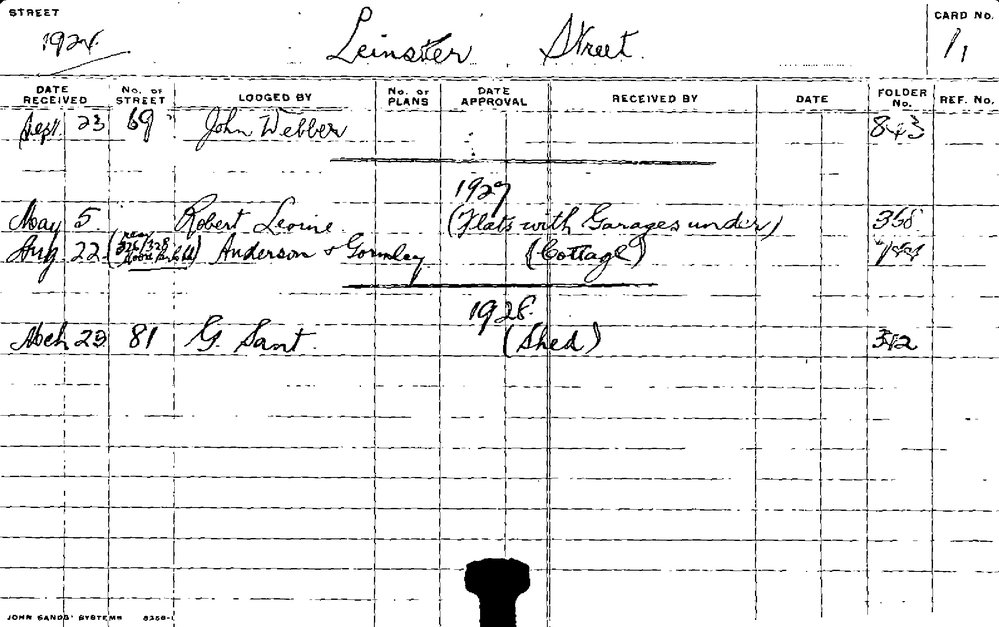 STREET Leinster Street CARD No.
1924 1/1
DATE RECEIVED No. OF STREET LODGED BY No. OF PLANS DATE APPROVAL RECEIVED BY DATE FOLDER No. REF. No.
Sept 23 69 John Webber 843
1927
May 5 Robert Levine (Flats with Garages under) 368
Aug 22 (rear 326/328 Anderson & Gormley (Cottage)
1928
Mch 23 81 G. Sant (Shed) 312
JOHN SANDS' SYSTEMS 8358-1